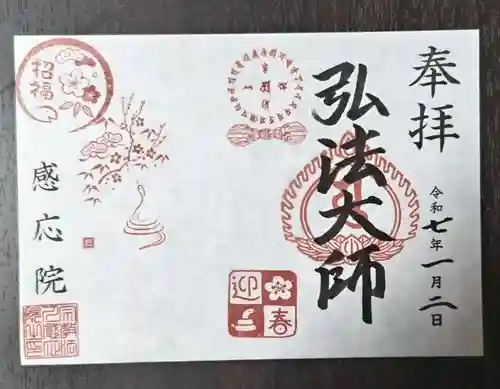 奉拝
令和七年一月二日
弘法大師
迎春
招福
感応院